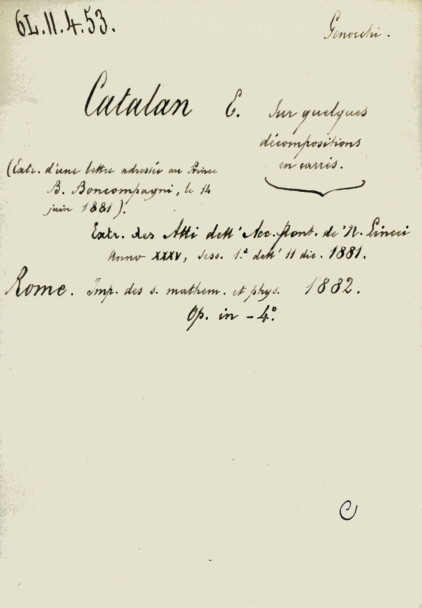 6L.II.4.53.
Genocchi.
Catalan E. Sur quelques
décompositions
en carrés.
(Extr. d'une lettre adressée au Prince
B. Boncompagni, le 14
juin 1881).
Extr. des Atti dell' Acc. Pont. de' N. Lincei
Anno XXXV, Sess. 1.ª dell' 11 dic. 1881.
Rome. Imp. des s. mathem. et phys. 1882.
Op. in - 4.º
C